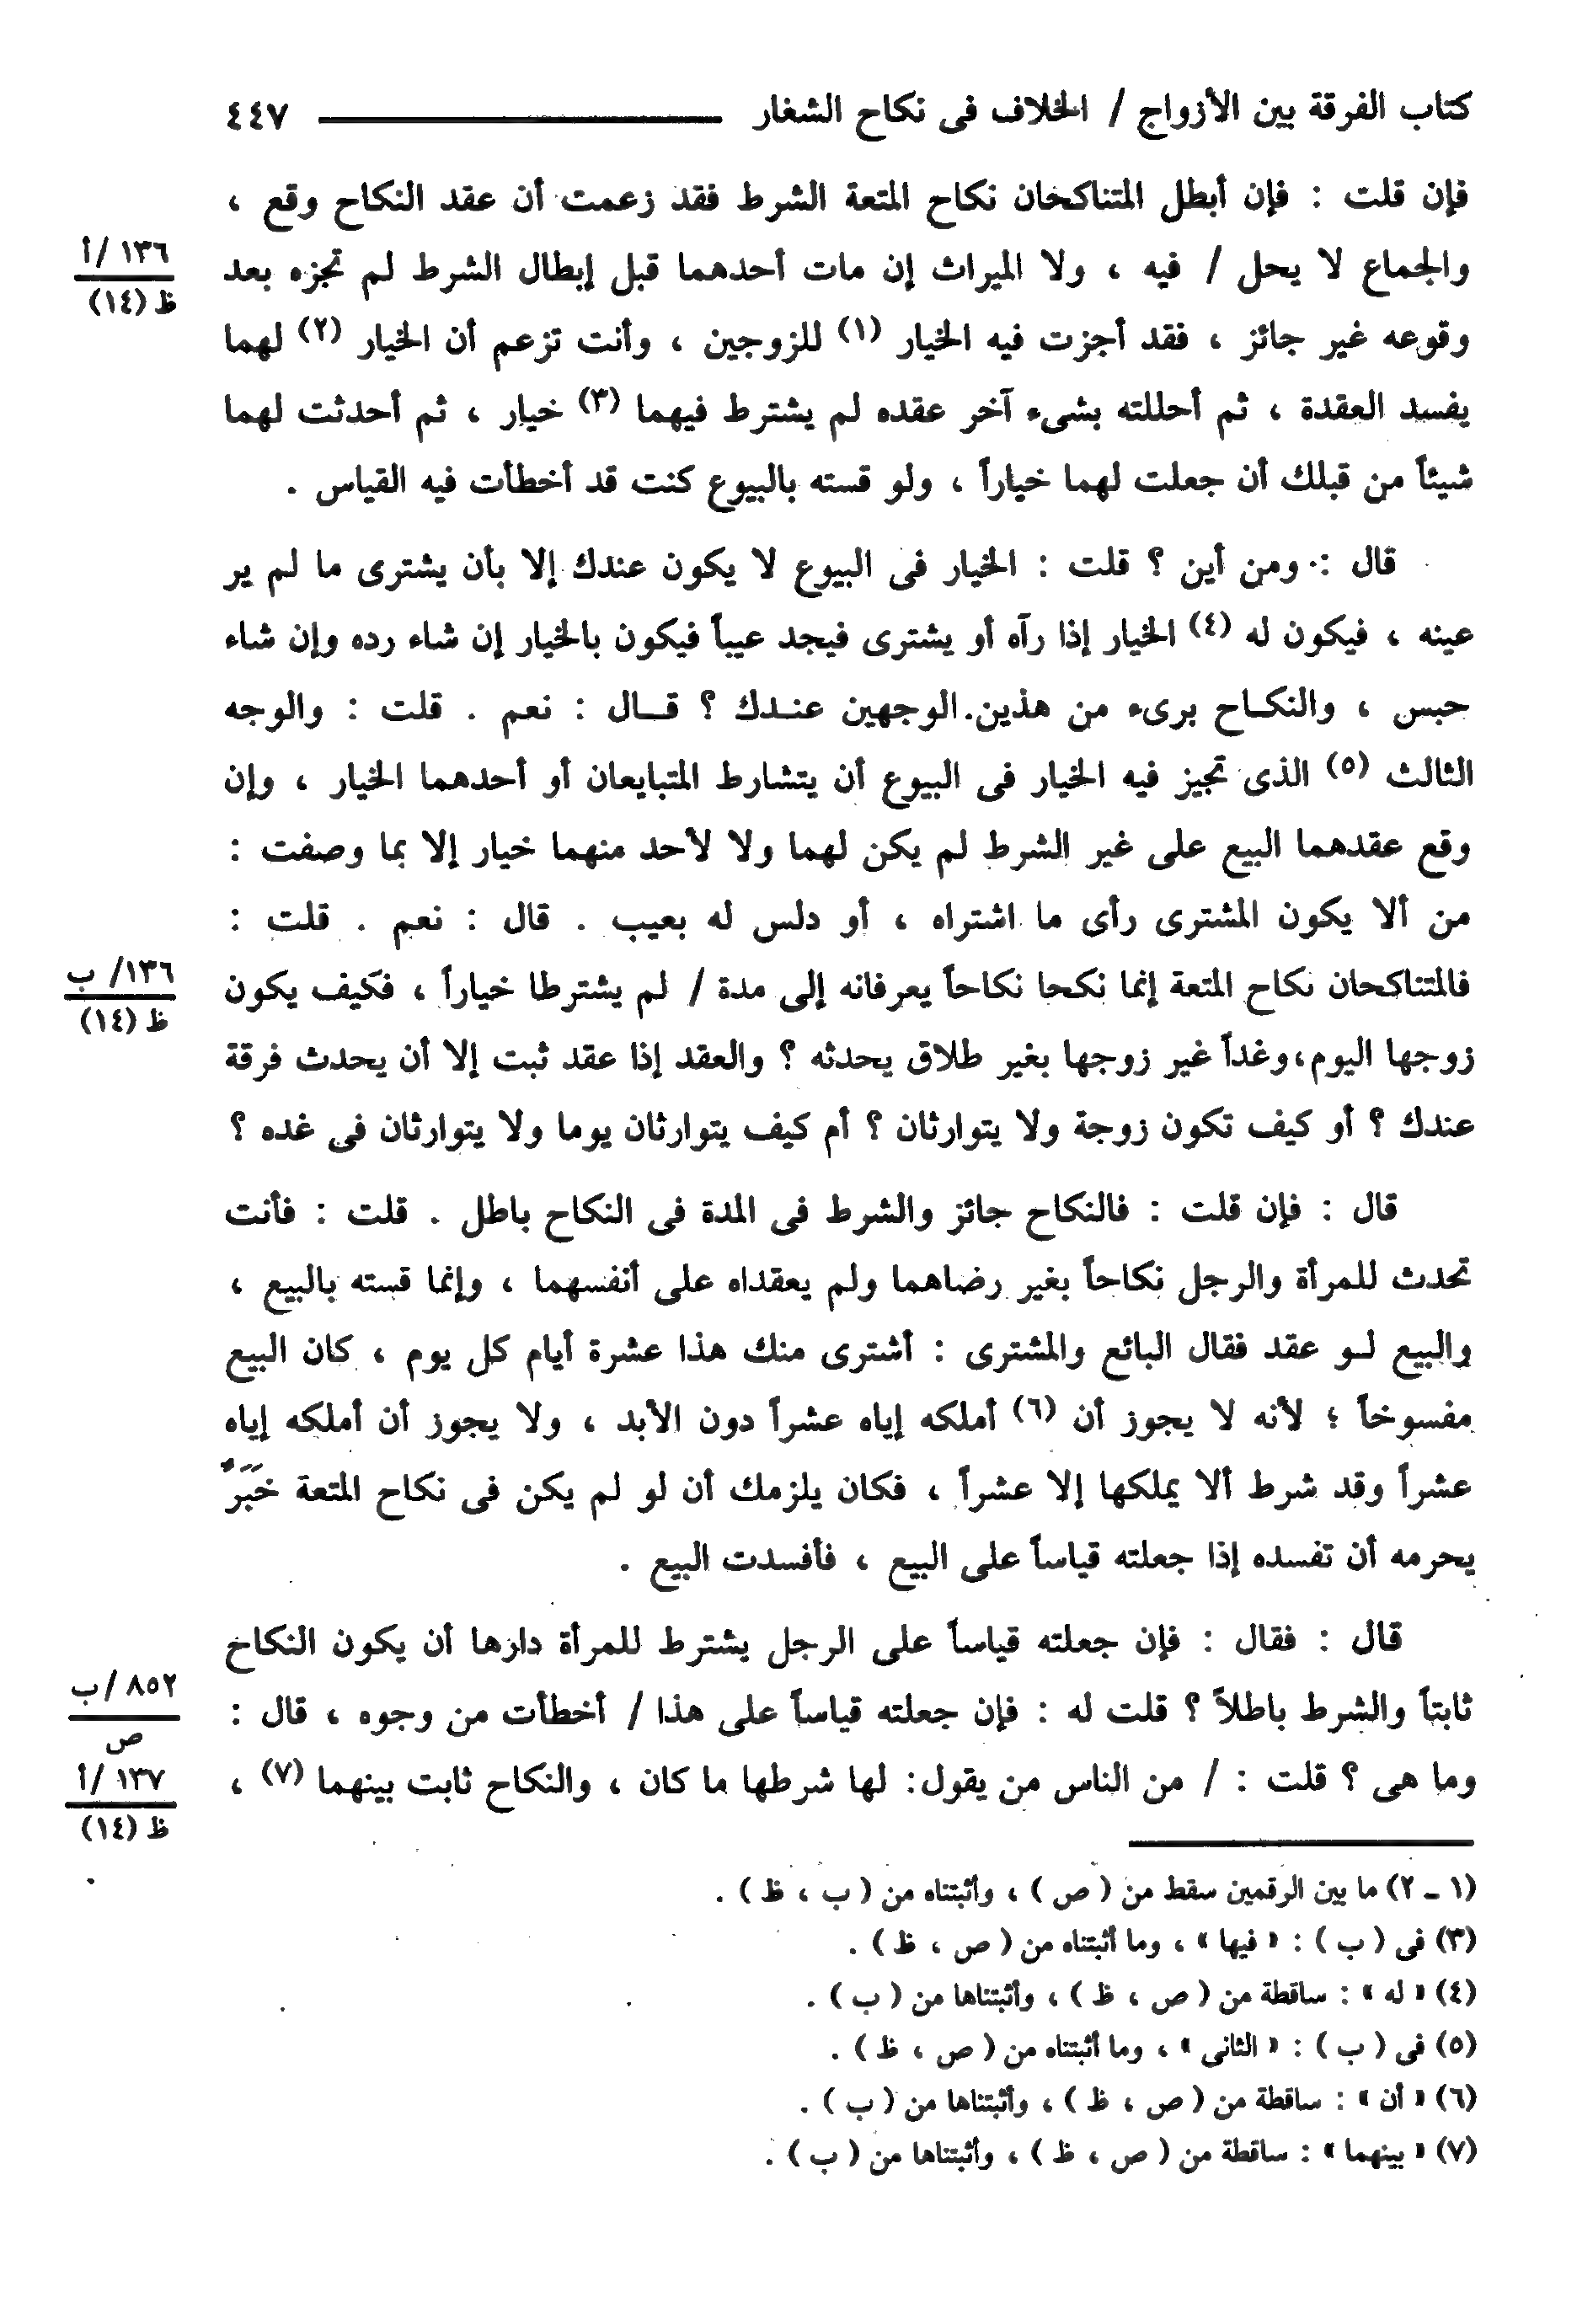 كتاب الفرقة بين الأزواج / الخلاف فى نكاح الشغار ٤٤٧
فإن قلت : فإن أبطل المتناكحان نكاح المتعة الشرط فقد زعمت أن عقد النكاح وقع ،
والجماع لا يحل / فيه ، ولا الميراث إن مات أحدهما قبل إبطال الشرط لم تجزه بعد
١٣٦ /أ
ظ (١٤)
وقوعه غير جائز ، فقد أجزت فيه الخيار (١) للزوجين ، وأنت تزعم أن الخيار (٢) لهما
يفسد العقدة ، ثم أحللته بشىء آخر عقده لم يشترط فيهما (٣) خيار ، ثم أحدثت لهما
شيئاً من قبلك أن جعلت لهما خياراً ، ولو قسته بالبيوع كنت قد أخطأت فيه القياس .
قال : ومن أين ؟ قلت : الخيار فى البيوع لا يكون عندك إلا بأن يشترى ما لم ير
عينه ، فيكون له (٤) الخيار إذا رآه أو يشترى فيجد عيباً فيكون بالخيار إن شاء رده وإن شاء
حبس ، والنكـاح برىء من هذين الوجهين عنـدك ؟ قـال : نعم . قلت : والوجه
الثالث (٥) الذى تجيز فيه الخيار فى البيوع أن يتشارط المتبايعان أو أحدهما الخيار ، وإن
وقع عقدهما البيع على غير الشرط لم يكن لهما ولا لأحد منهما خيار إلا بما وصفت :
من ألا يكون المشترى رأى ما اشتراه ، أو دلس له بعيب . قال : نعم . قلت :
فالمتناكحان نكاح المتعة إنما نكحا نكاحاً يعرفانه إلى مدة / لم يشترطا خياراً ، فكيف يكون
١٣٦/ ب
ظ (١٤)
زوجها اليوم،وغداً غير زوجها بغير طلاق يحدثه ؟ والعقد إذا عقد ثبت إلا أن يحدث فرقة
عندك ؟ أو كيف تكون زوجة ولا يتوارثان ؟ أم كيف يتوارثان يوما ولا يتوارثان فى غده ؟
قال : فإن قلت : فالنكاح جائز والشرط فى المدة فى النكاح باطل . قلت : فأنت
تحدث للمرأة والرجل نكاحاً بغير رضاهما ولم يعقداه على أنفسهما ، وإنما قسته بالبيع ،
والبيع لـو عقد فقال البائع والمشترى : أشترى منك هذا عشرة أيام كل يوم ، كان البيع
مفسوخاً ؛ لأنه لا يجوز أن (٦) أملكه إياه عشراً دون الأبد ، ولا يجوز أن أملكه إياه
عشراً وقد شرط ألا يملكها إلا عشراً ، فكان يلزمك أن لو لم يكن فى نكاح المتعة خَبَرٌ
يحرمه أن تفسده إذا جعلته قياساً على البيع ، فأفسدت البيع .
قال : فقال : فإن جعلته قياساً على الرجل يشترط للمرأة دارها أن يكون النكاح
ثابتاً والشرط باطلاً ؟ قلت له : فإن جعلته قياساً على هذا / أخطأت من وجوه ، قال :
٨٥٢ /ب
ص
وما هى ؟ قلت : / من الناس من يقول: لها شرطها ما كان ، والنكاح ثابت بينهما (٧) ،
١٣٧ /أ
ظ (١٤)
(١ ـ ٢) ما بين الرقمين سقط من ( ص ) ، وأثبتناه من ( ب ، ظ ) .
(٣) فى ( ب ) : « فيها » ، وما أثبتناه من ( ص ، ظ ) .
(٤) « له » : ساقطة من ( ص ، ظ ) ، وأثبتناها من ( ب ) .
(٥) فى ( ب ) : « الثانى » ، وما أثبتناه من ( ص ، ظ ) .
(٦) « أن » : ساقطة من ( ص ، ظ ) ، وأثبتناها من ( ب ) .
(٧) « بينهما » : ساقطة من ( ص ، ظ ) ، وأثبتناها من ( ب ) .